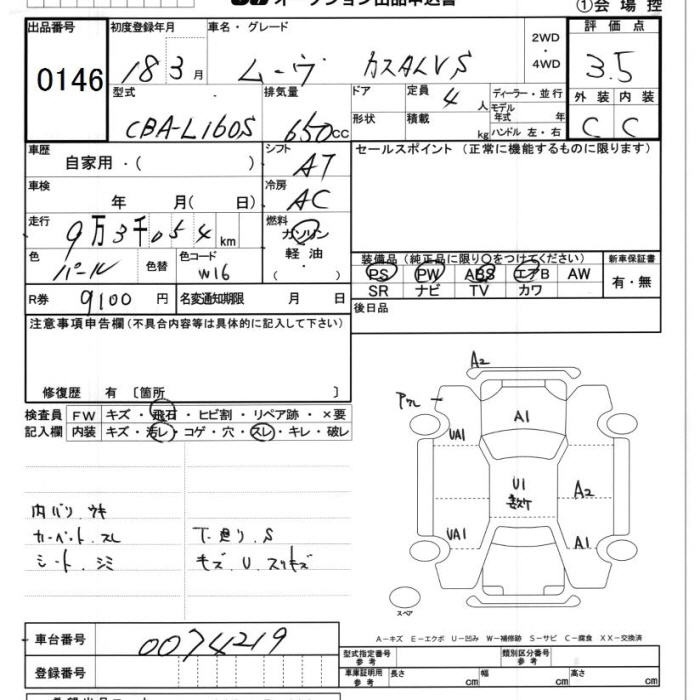 オークション出品申込書 ①会場控
出品番号 初度登録年月 車名・グレード 2WD・4WD 評価点
0146 18 3月 ムーヴ カスALVS 3.5
型式 排気量 ドア 定員 4人 ディーラー・並行 外装 内装
CBA-L160S 650cc 形状 積載 kg モデル年式 年 ハンドル 左・右 C C
車歴 シフト セールスポイント(正常に機能するものに限ります)
自家用・( ) AT
車検 冷房
年 月( 日) AC
走行 燃料
9万3千054km ガソリン
色 色替 色コード 軽油 装備品(純正品に限り○をつけてください) 新車保証書
パール W16 ・( ) PS PW ABS エアB AW 有・無
SR ナビ TV カワ
R券 9100円 名変通知期限 月 日 後日品
注意事項申告欄(不具合内容等は具体的に記入して下さい)
修復歴 有 〔箇所 〕
検査員 FW キズ・飛石・ヒビ割・リペア跡・×要
記入欄 内装 キズ・汚レ・コゲ・穴・スレ・キレ・破レ
A2
アクレ
A1
UA1
U1
A2
UA1
A1
内バリ.ウキ
カーペット.スレ 下廻り.S
シート.シミ キズ.U.スリキズ
スペア
A-キズ E-エクボ U-凹み W-補修跡 S-サビ C-腐食 XX-交換済
車台番号 0074219
型式指定番号 参考 類別区分番号 参考
登録番号
車庫証明用 参考 長さ cm 幅 cm 高さ cm